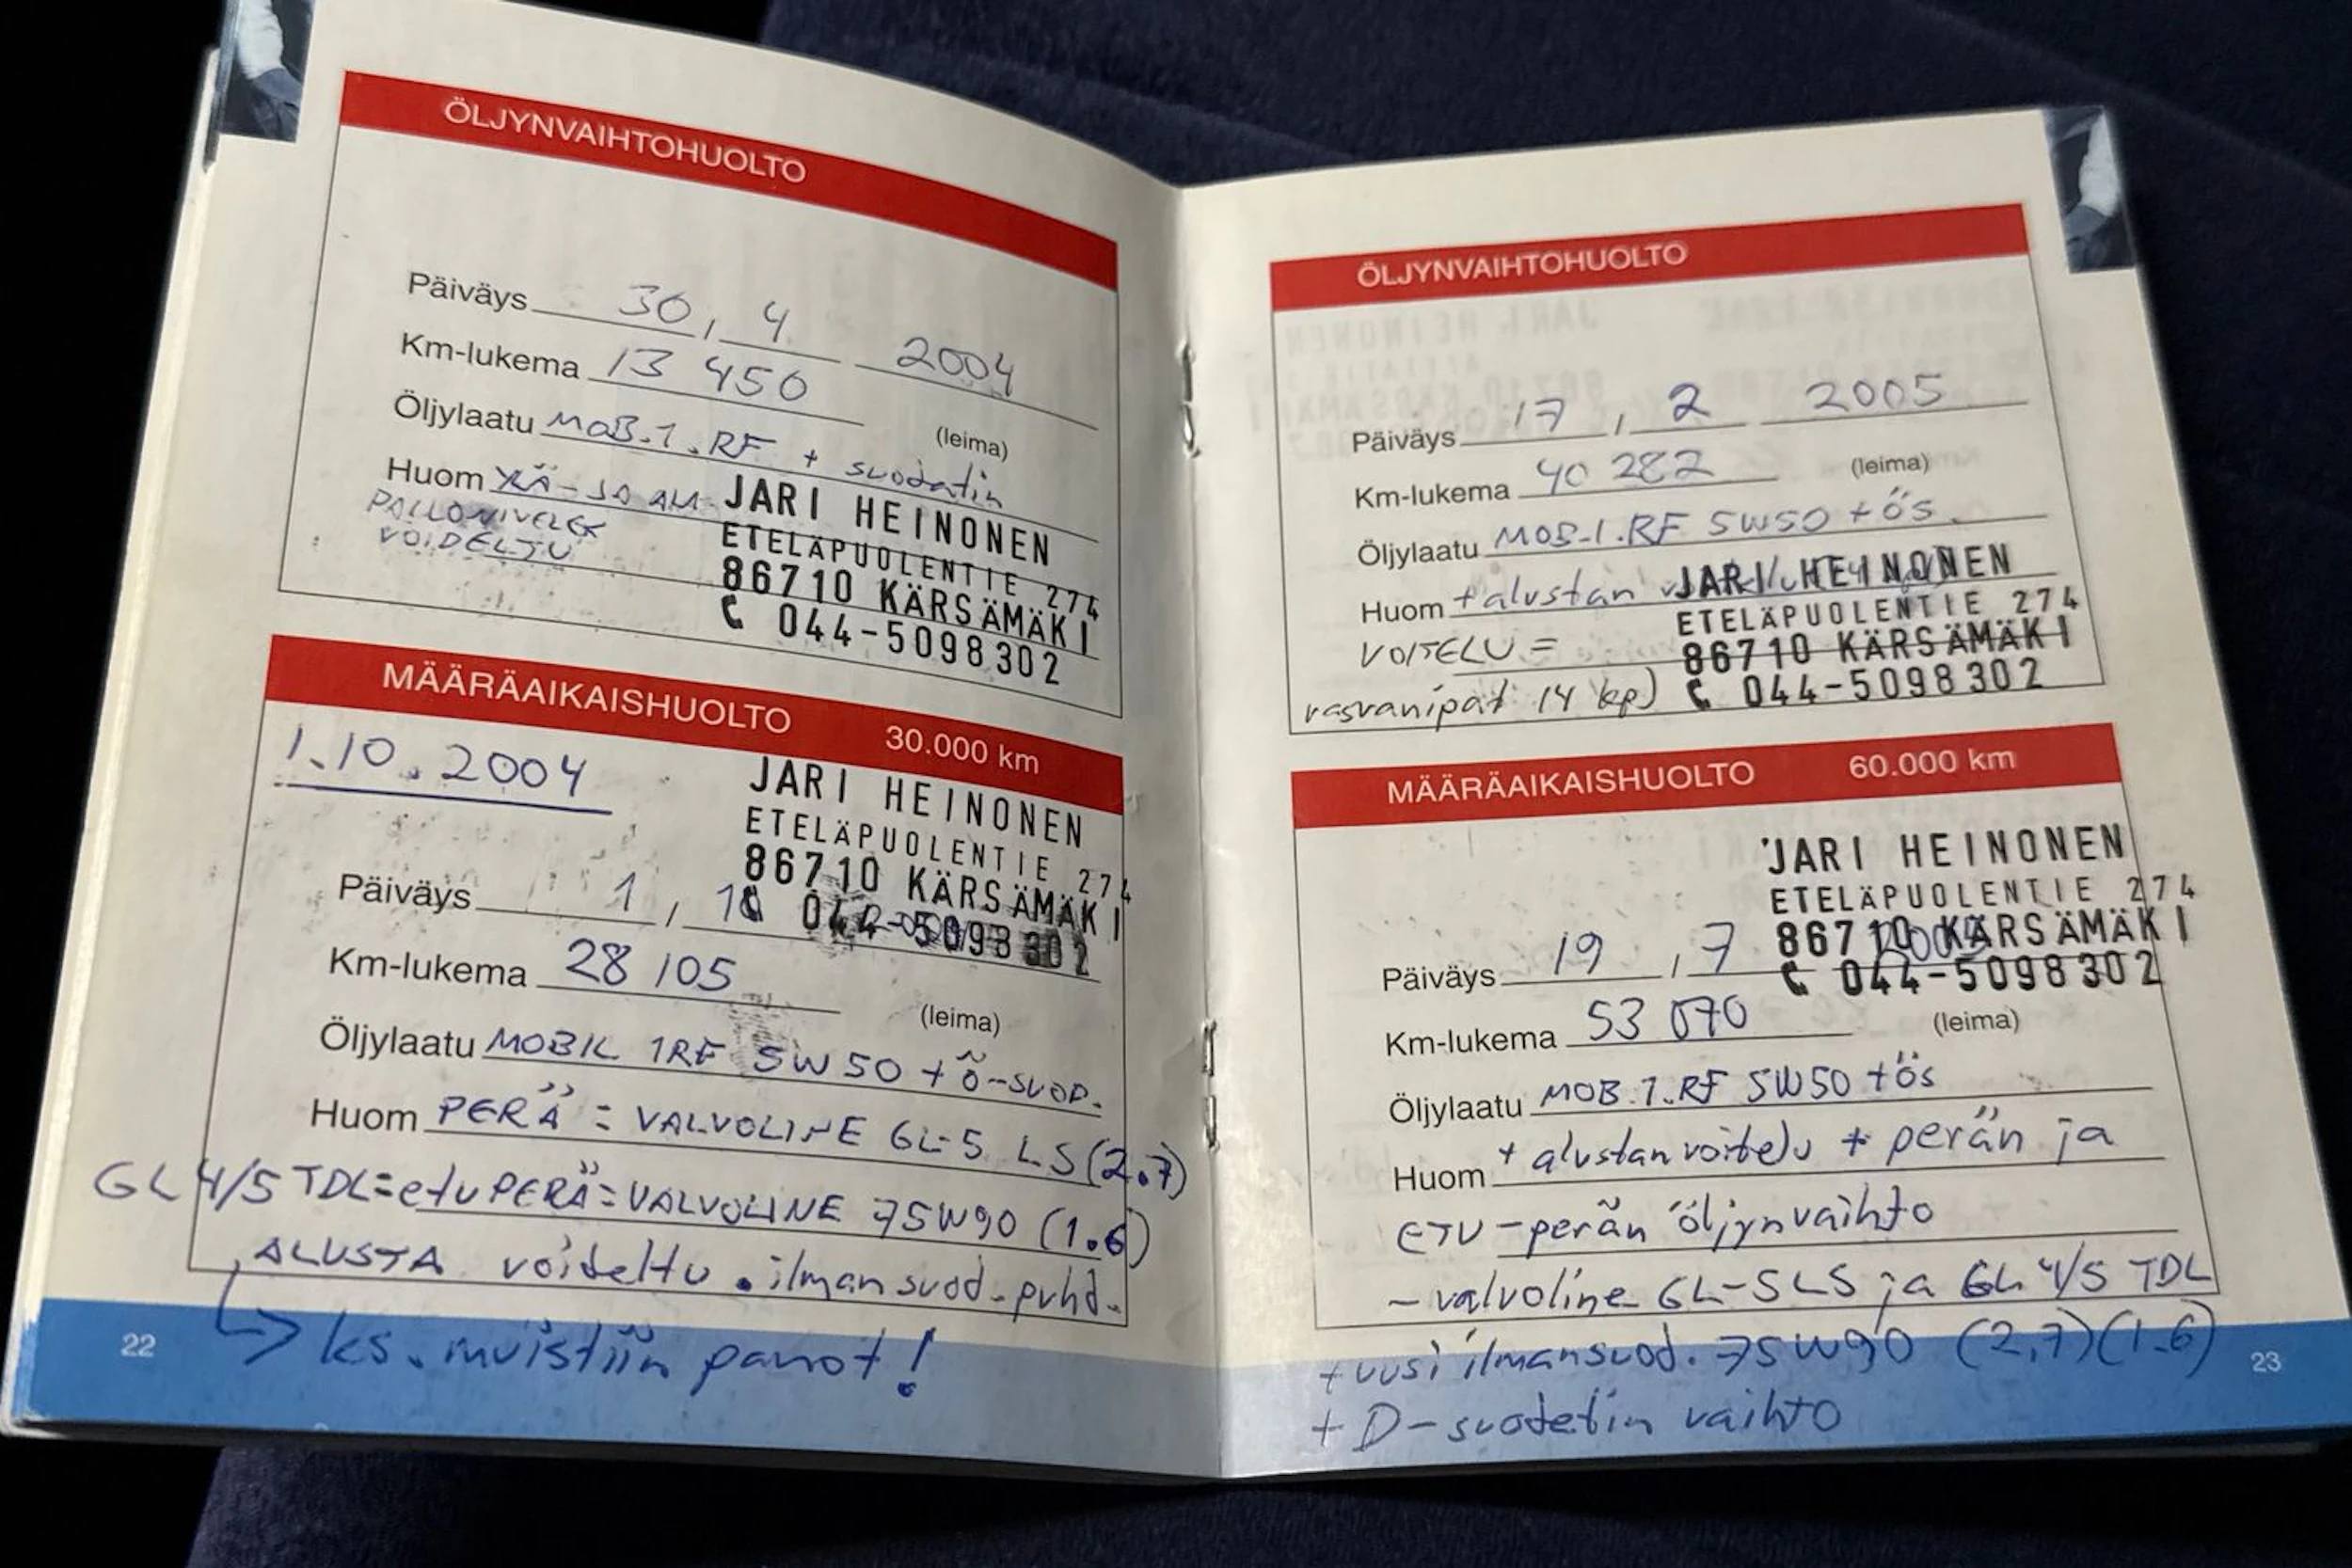 ÖLJYNVAIHTOHUOLTO
Päiväys 30, 4 2004
Km-lukema 13 450
Öljylaatu MOB.1.RF + suodatin
(leima)
Huom YLÄ- JA ALA
PALLONIVELET
VOIDELTU
JARI HEINONEN
ETELÄPUOLENTIE 274
86710 KÄRSÄMÄKI
044-5098302
MÄÄRÄAIKAISHUOLTO 30.000 km
1.10.2004
JARI HEINONEN
ETELÄPUOLENTIE 274
86710 KÄRSÄMÄKI
044-5098302
Päiväys 1, 10
Km-lukema 28 105
(leima)
Öljylaatu MOBIL 1RF 5W50 + Ö-SUOD.
Huom PERÄ = VALVOLINE GL-5 LS (2.7)
GL 4/5 TDL = etu PERÄ = VALVOLINE 75W90 (1.6)
ALUSTA voideltu . ilmansuod. puhd.
ks. muistiin panot!
22
ÖLJYNVAIHTOHUOLTO
Päiväys 17, 2 2005
Km-lukema 40 282
(leima)
Öljylaatu MOB.1.RF 5W50 + ös.
Huom + alustan
VOITELU =
rasvanipat 14 kp)
JARI HEINONEN
ETELÄPUOLENTIE 274
86710 KÄRSÄMÄKI
044-5098302
MÄÄRÄAIKAISHUOLTO 60.000 km
JARI HEINONEN
ETELÄPUOLENTIE 274
86710 KÄRSÄMÄKI
044-5098302
Päiväys 19, 7 2005
Km-lukema 53 070
(leima)
Öljylaatu MOB.1.RF 5W50 + ös
Huom + alustan voitelu + perän ja
ETU-perän öljynvaihto
- valvoline GL-5 LS ja GL 4/5 TDL
+ uusi ilmansuod. 75W90 (2,7) (1.6)
+ D-suodatin vaihto
23